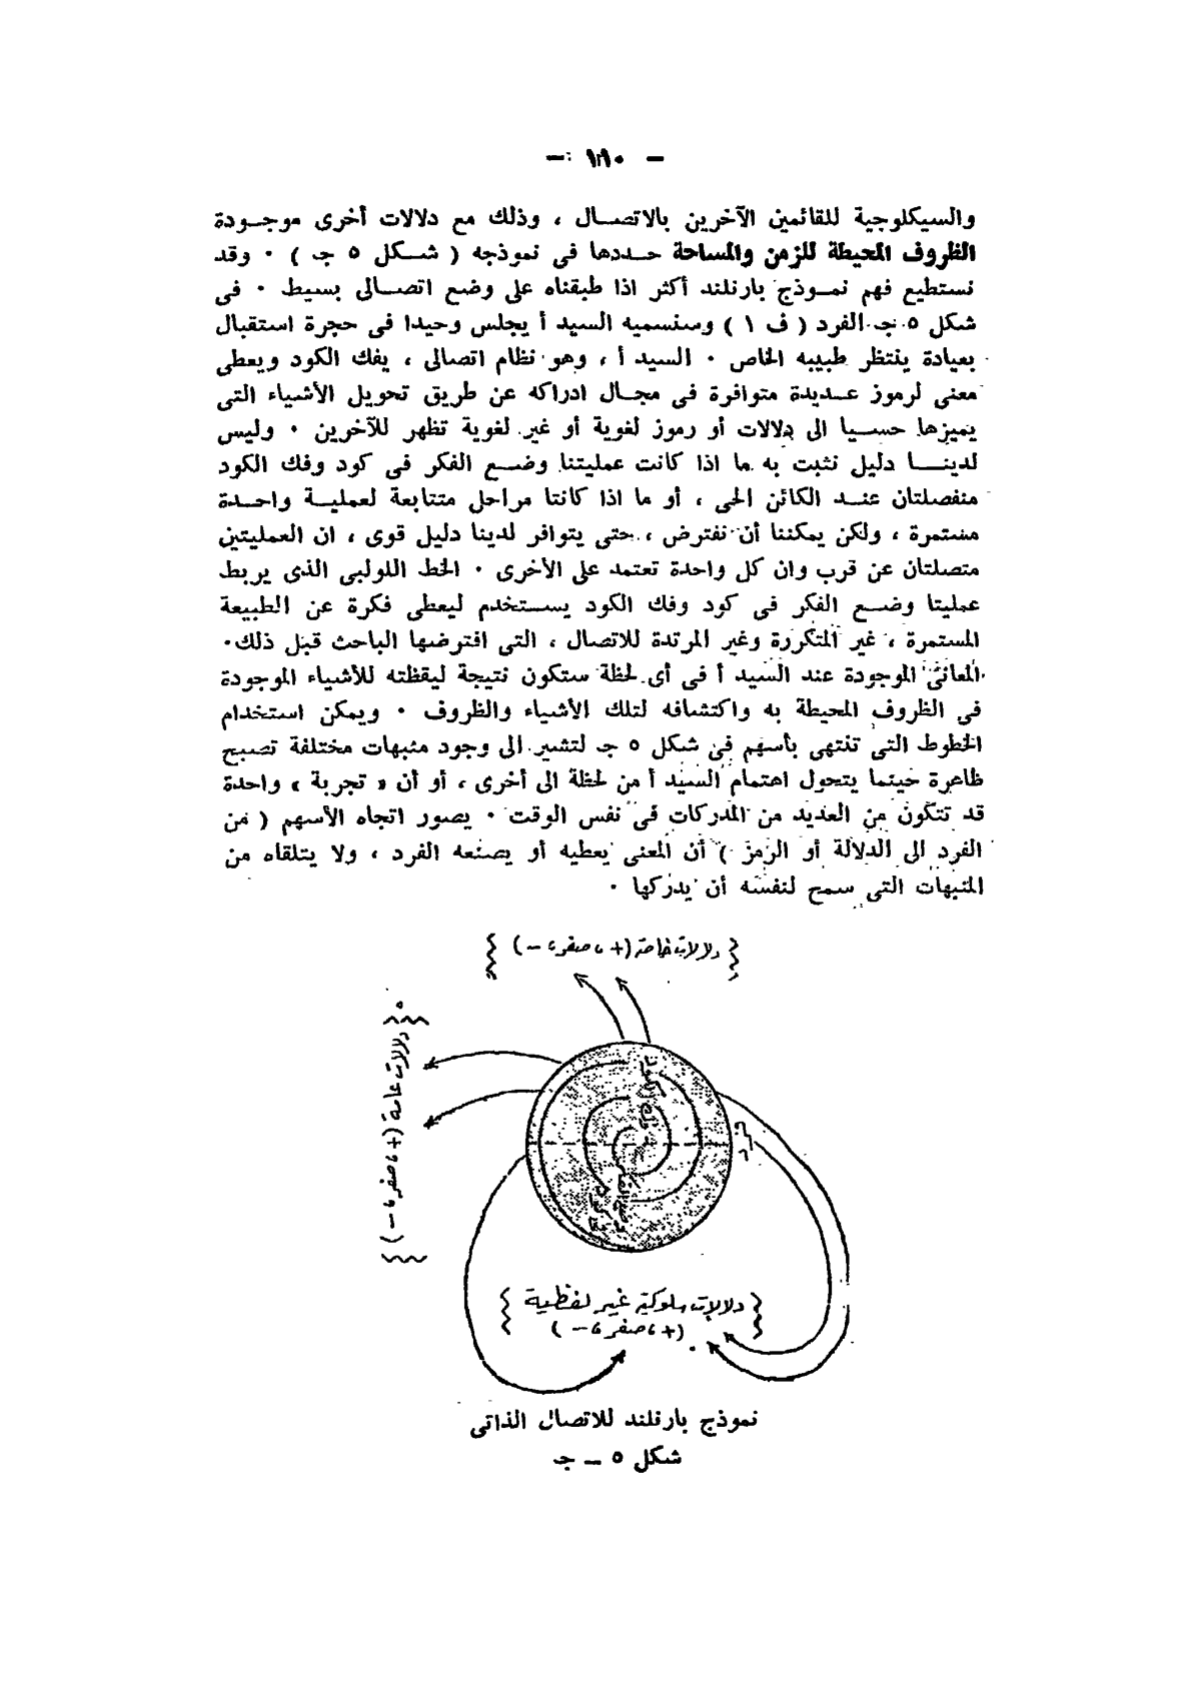 — ١٩٠ —
والسيكلوجية للقائمين الآخرين بالاتصال ، وذلك مع دلالات أخرى موجودة
الظروف المحيطة للزمن والمساحة حددها فى نموذجه ( شكل ٥ جـ ) ٠ وقد
نستطيع فهم نموذج بارنلند أكثر اذا طبقناه على وضع اتصالى بسيط ٠ فى
شكل ٥ جـ الفرد ( ف ١ ) وسنسميه السيد أ يجلس وحيدا فى حجرة استقبال
بعيادة ينتظر طبيبه الخاص ٠ السيد أ ، وهو نظام اتصالى ، يفك الكود ويعطى
معنى لرموز عديدة متوافرة فى مجال ادراكه عن طريق تحويل الأشياء التى
يميزها حسيا الى دلالات أو رموز لغوية أو غير لغوية تظهر للآخرين ٠ وليس
لدينا دليل نثبت به ما اذا كانت عمليتنا وضع الفكر فى كود وفك الكود
منفصلتان عند الكائن الحى ، أو ما اذا كانتا مراحل متتابعة لعملية واحدة
مستمرة ، ولكن يمكننا أن نفترض ، حتى يتوافر لدينا دليل قوى ، ان العمليتين
متصلتان عن قرب وان كل واحدة تعتمد على الأخرى ٠ الخط اللولبى الذى يربط
عمليتا وضع الفكر فى كود وفك الكود يستخدم ليعطى فكرة عن الطبيعة
المستمرة ، غير المتكررة وغير المرتدة للاتصال ، التى افترضها الباحث قبل ذلك٠
المعانى الموجودة عند السيد أ فى أى لحظة ستكون نتيجة ليقظته للأشياء الموجودة
فى الظروف المحيطة به واكتشافه لتلك الأشياء والظروف ٠ ويمكن استخدام
الخطوط التى تنتهى بأسهم فى شكل ٥ جـ لتشير الى وجود منبهات مختلفة تصبح
ظاهرة حينما يتحول اهتمام السيد أ من لحظة الى أخرى ، أو أن « تجربة » واحدة
قد تتكون من العديد من المدركات فى نفس الوقت ٠ يصور اتجاه الأسهم ( من
الفرد الى الدلالة أو الرمز ) أن المعنى يعطيه أو يصنعه الفرد ، ولا يتلقاه من
المنبهات التى سمح لنفسه أن يدركها ٠
دلالات خاصة (+ ، صفر ، −)
دلالات عامة (+ ، صفر ، −)
فك الكود
وضع الفكر
دلالات سلوكية غير لفظية
(+ ، صفر ، −)
نموذج بارنلند للاتصال الذاتى
شكل ٥ — جـ